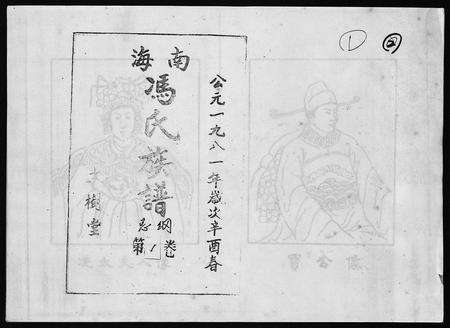 ① ②
公元一九八一年歲次辛酉春
南海
馮氏族譜
第1卷
大樹堂